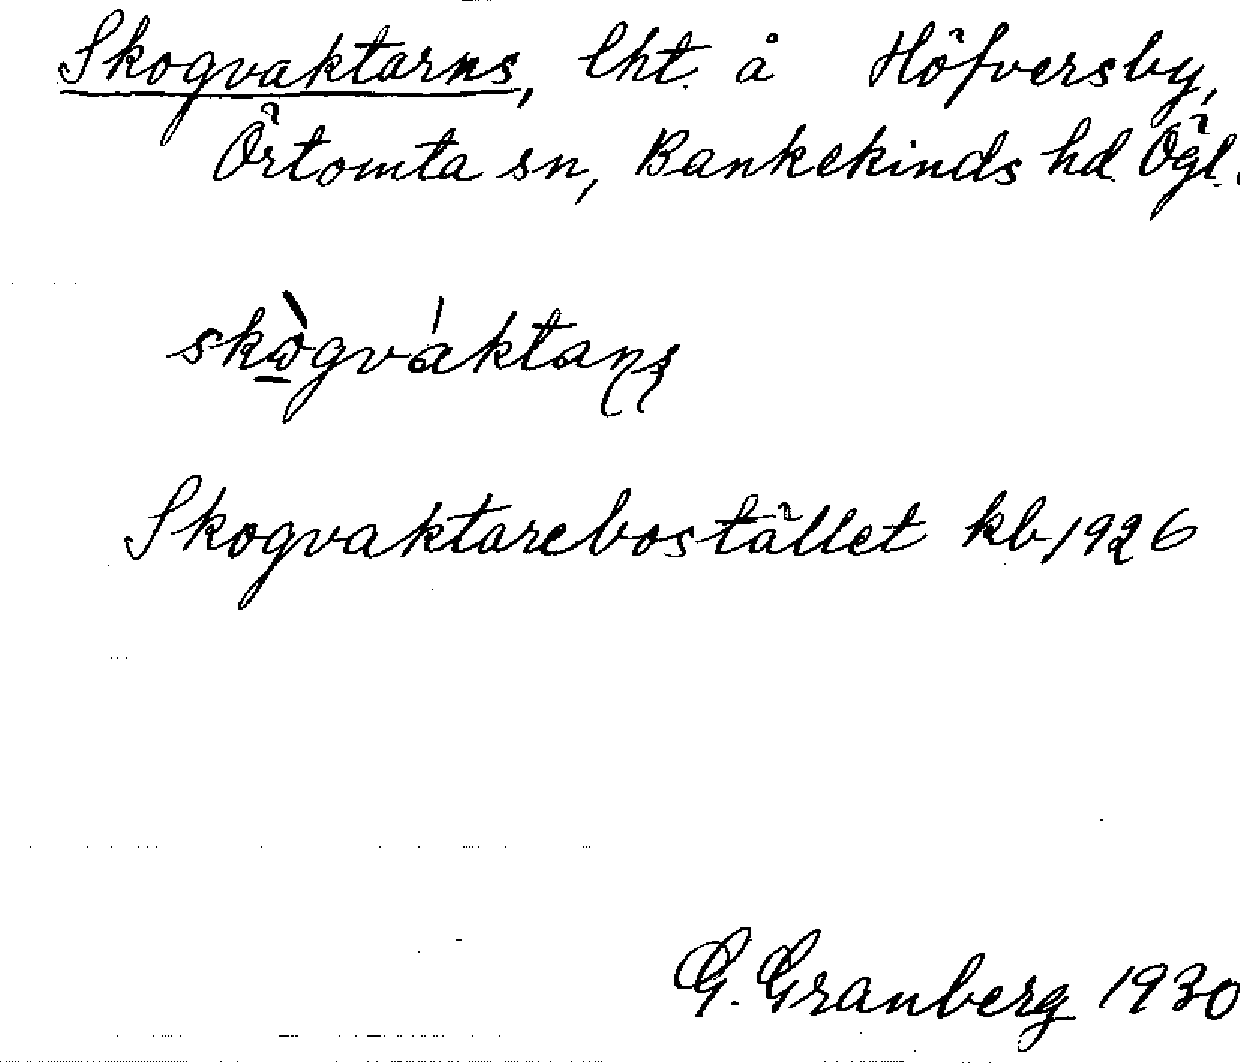 Skogvaktarns, lht. å Höfversby,
Örtomta sn, Bankekinds hd. Ögl.
skò̠gváktaņş
Skogvaktarebostället kb 1926
G. Granberg 1930